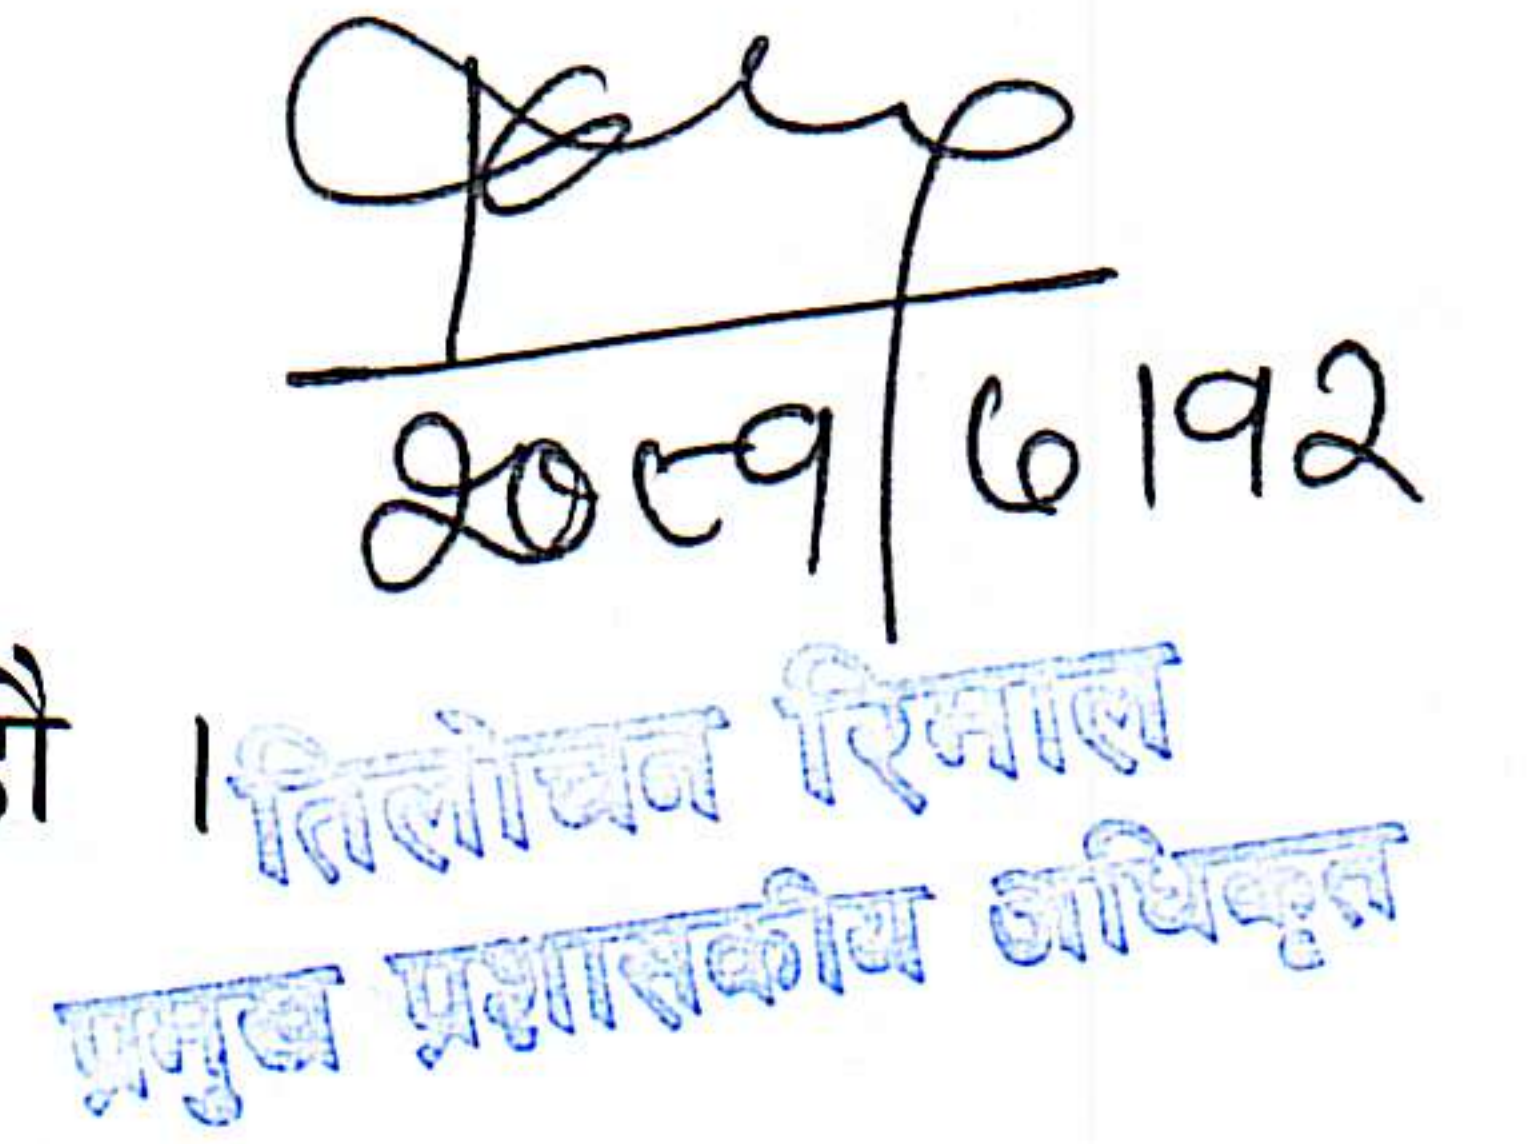 २०८१।७।१२
तिलोचन रिमाल
प्रमुख प्रशासकीय अधिकृत